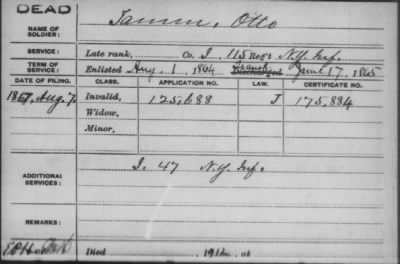 DEAD
NAME OF SOLDIER: Tamm, Otto
SERVICE: Late rank, Co. I, 115 Reg't N.Y. Inf.
TERM OF SERVICE: Enlisted Aug. 1, 1864 Discharged June 17, 1865
DATE OF FILING. CLASS. APPLICATION NO. LAW. CERTIFICATE NO.
1867, Aug. 7. Invalid, 125,688 J 175,884
Widow,
Minor,
ADDITIONAL SERVICES: I. 47 N.Y. Inf.
REMARKS:
Died , 191